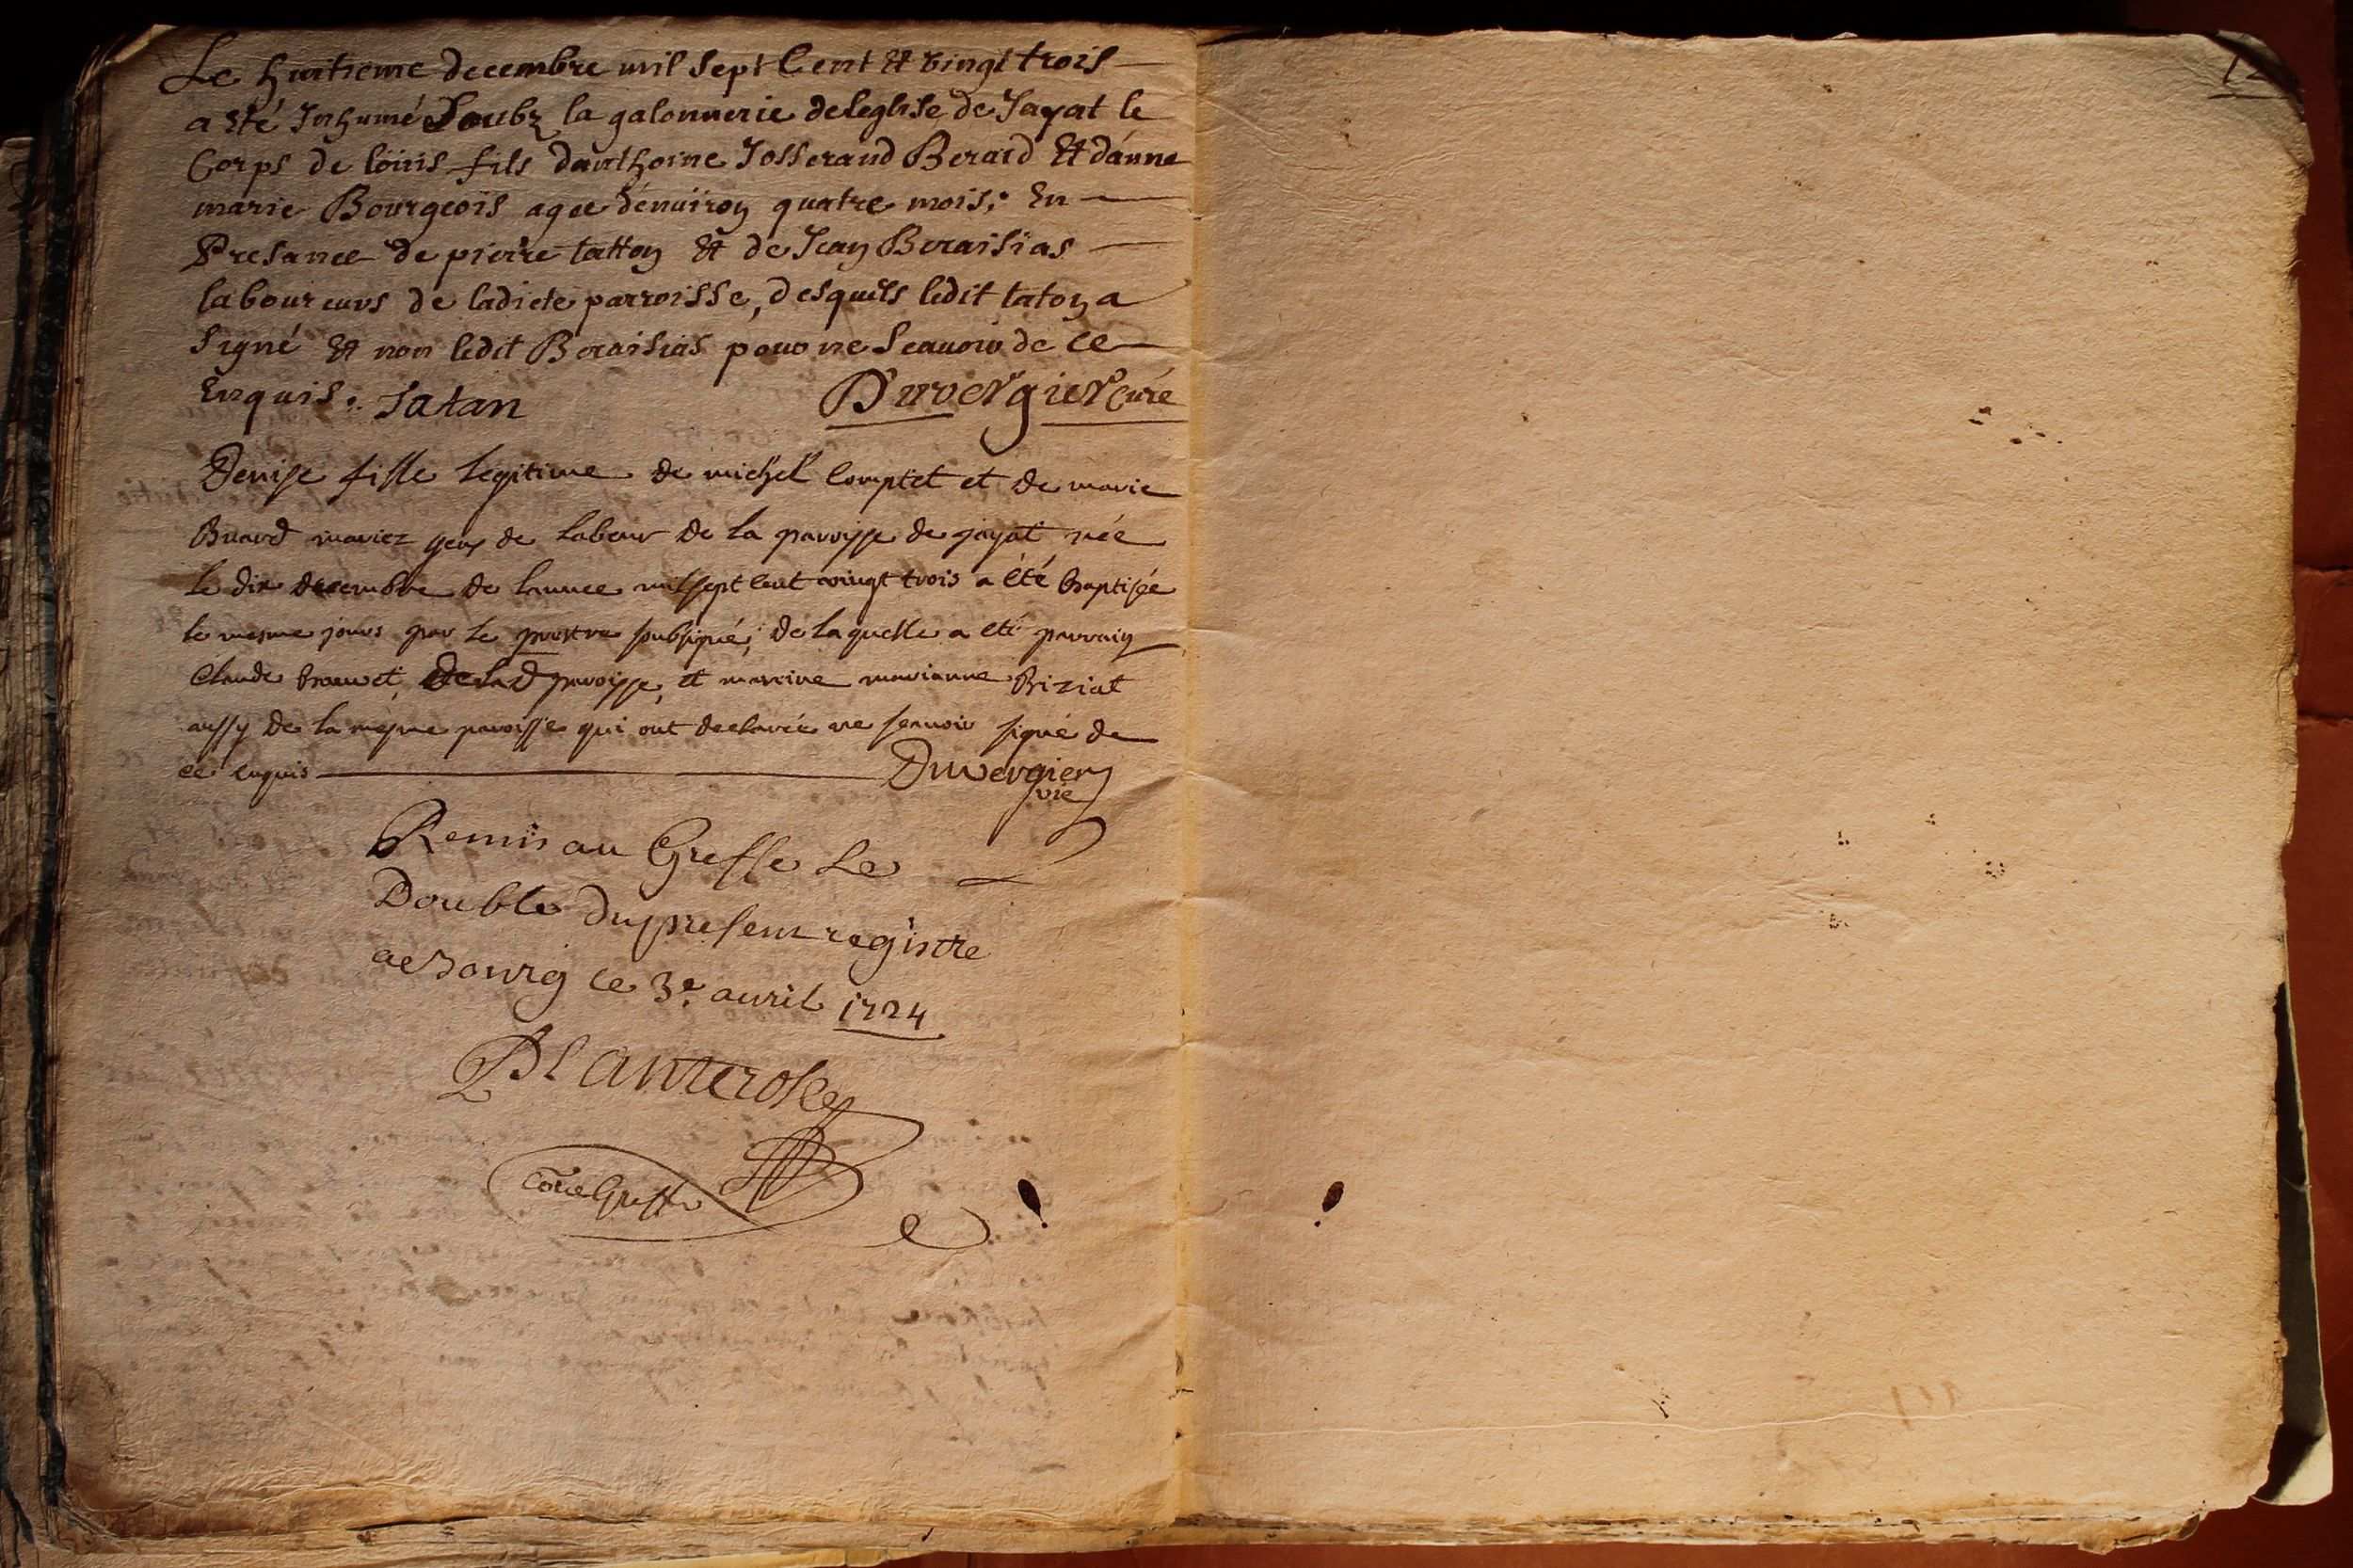 Le huitieme decembre mil sept Cent Et vingt trois
a Eté Inhumé Soubz la galonnerie deleglise de Jayat le
Corps de loüis fils danthoine Josserand Berard Et dánne
marie Bourgeois agee dénuiron quatre mois, En
Presance de pierre tatton Et de Jean Beraisias
laboureurs de ladicte parroisse, desquels ledit taton a
Signé Et non ledit Beraisias pour ne Scauoir de ce
Enquis. Tatan Duvergier Curé
Denise fille legitime de michel Comptet et de marie
Buard mariez gens de labeur de la paroisse de jayat née
le dix decembre de lannee mil sept cent vingt trois a été baptisée
le mesme jours par le prestre soubsigné, de laquelle a eté parrain
Claude brouvet, de lad paroisse, et mareine marianne Biziat
aussy de la mesme paroisse qui ont declarée ne scauoir signé de
ce enquis Duvergier
vic
Remis au Greffe Le
Double du present registre
a Bourg le 3e auril 1724
Planterose
Com̃e Greffe
12